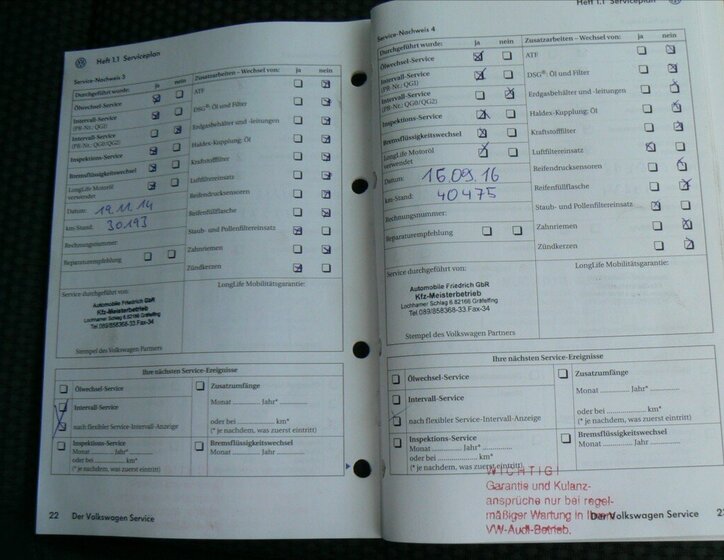 Heft 1.1 Serviceplan
Service-Nachweis 3
Durchgeführt wurde: ja nein
Ölwechsel-Service
Intervall-Service
(PR-Nr.: QG1)
Intervall-Service
(PR-Nr.: QG0/QG2)
Inspektions-Service
Bremsflüssigkeitswechsel
LongLife Motoröl
verwendet
Datum: 19.11.14
km-Stand: 30193
Rechnungsnummer:
Reparaturempfehlung
Zusatzarbeiten – Wechsel von: ja nein
ATF
DSG®: Öl und Filter
Erdgasbehälter und -leitungen
Haldex-Kupplung: Öl
Kraftstofffilter
Luftfiltereinsatz
Reifendrucksensoren
Reifenfüllflasche
Staub- und Pollenfiltereinsatz
Zahnriemen
Zündkerzen
Service durchgeführt von:
LongLife Mobilitätsgarantie:
Automobile Friedrich GbR
Kfz-Meisterbetrieb
Lochhamer Schlag 6 82166 Gräfelfing
Tel.089/858368-33.Fax-34
Stempel des Volkswagen Partners
Ihre nächsten Service-Ereignisse
Ölwechsel-Service
Intervall-Service
nach flexibler Service-Intervall-Anzeige
Inspektions-Service
Monat Jahr*
oder bei km*
(* je nachdem, was zuerst eintritt)
Zusatzumfänge
Monat Jahr*
oder bei km*
(* je nachdem, was zuerst eintritt)
Bremsflüssigkeitswechsel
Monat Jahr
22 Der Volkswagen Service
Heft 1.1 Serviceplan
Service-Nachweis 4
Durchgeführt wurde: ja nein
Ölwechsel-Service
Intervall-Service
(PR-Nr.: QG1)
Intervall-Service
(PR-Nr.: QG0/QG2)
Inspektions-Service
Bremsflüssigkeitswechsel
LongLife Motoröl
verwendet
Datum: 15.09.16
km-Stand: 40475
Rechnungsnummer:
Reparaturempfehlung
Zusatzarbeiten – Wechsel von: ja nein
ATF
DSG®: Öl und Filter
Erdgasbehälter und -leitungen
Haldex-Kupplung: Öl
Kraftstofffilter
Luftfiltereinsatz
Reifendrucksensoren
Reifenfüllflasche
Staub- und Pollenfiltereinsatz
Zahnriemen
Zündkerzen
Service durchgeführt von:
LongLife Mobilitätsgarantie:
Automobile Friedrich GbR
Kfz-Meisterbetrieb
Lochhamer Schlag 6 82166 Gräfelfing
Tel.089/858368-33.Fax-34
Stempel des Volkswagen Partners
Ihre nächsten Service-Ereignisse
Ölwechsel-Service
Intervall-Service
nach flexibler Service-Intervall-Anzeige
Inspektions-Service
Monat Jahr*
oder bei km*
(* je nachdem, was zuerst eintritt)
Zusatzumfänge
Monat Jahr*
oder bei km*
(* je nachdem, was zuerst eintritt)
Bremsflüssigkeitswechsel
Monat Jahr
WICHTIG!
Garantie und Kulanz-
ansprüche nur bei regel-
mäßiger Wartung in Ihrem
VW-Audi-Betrieb.
Der Volkswagen Service